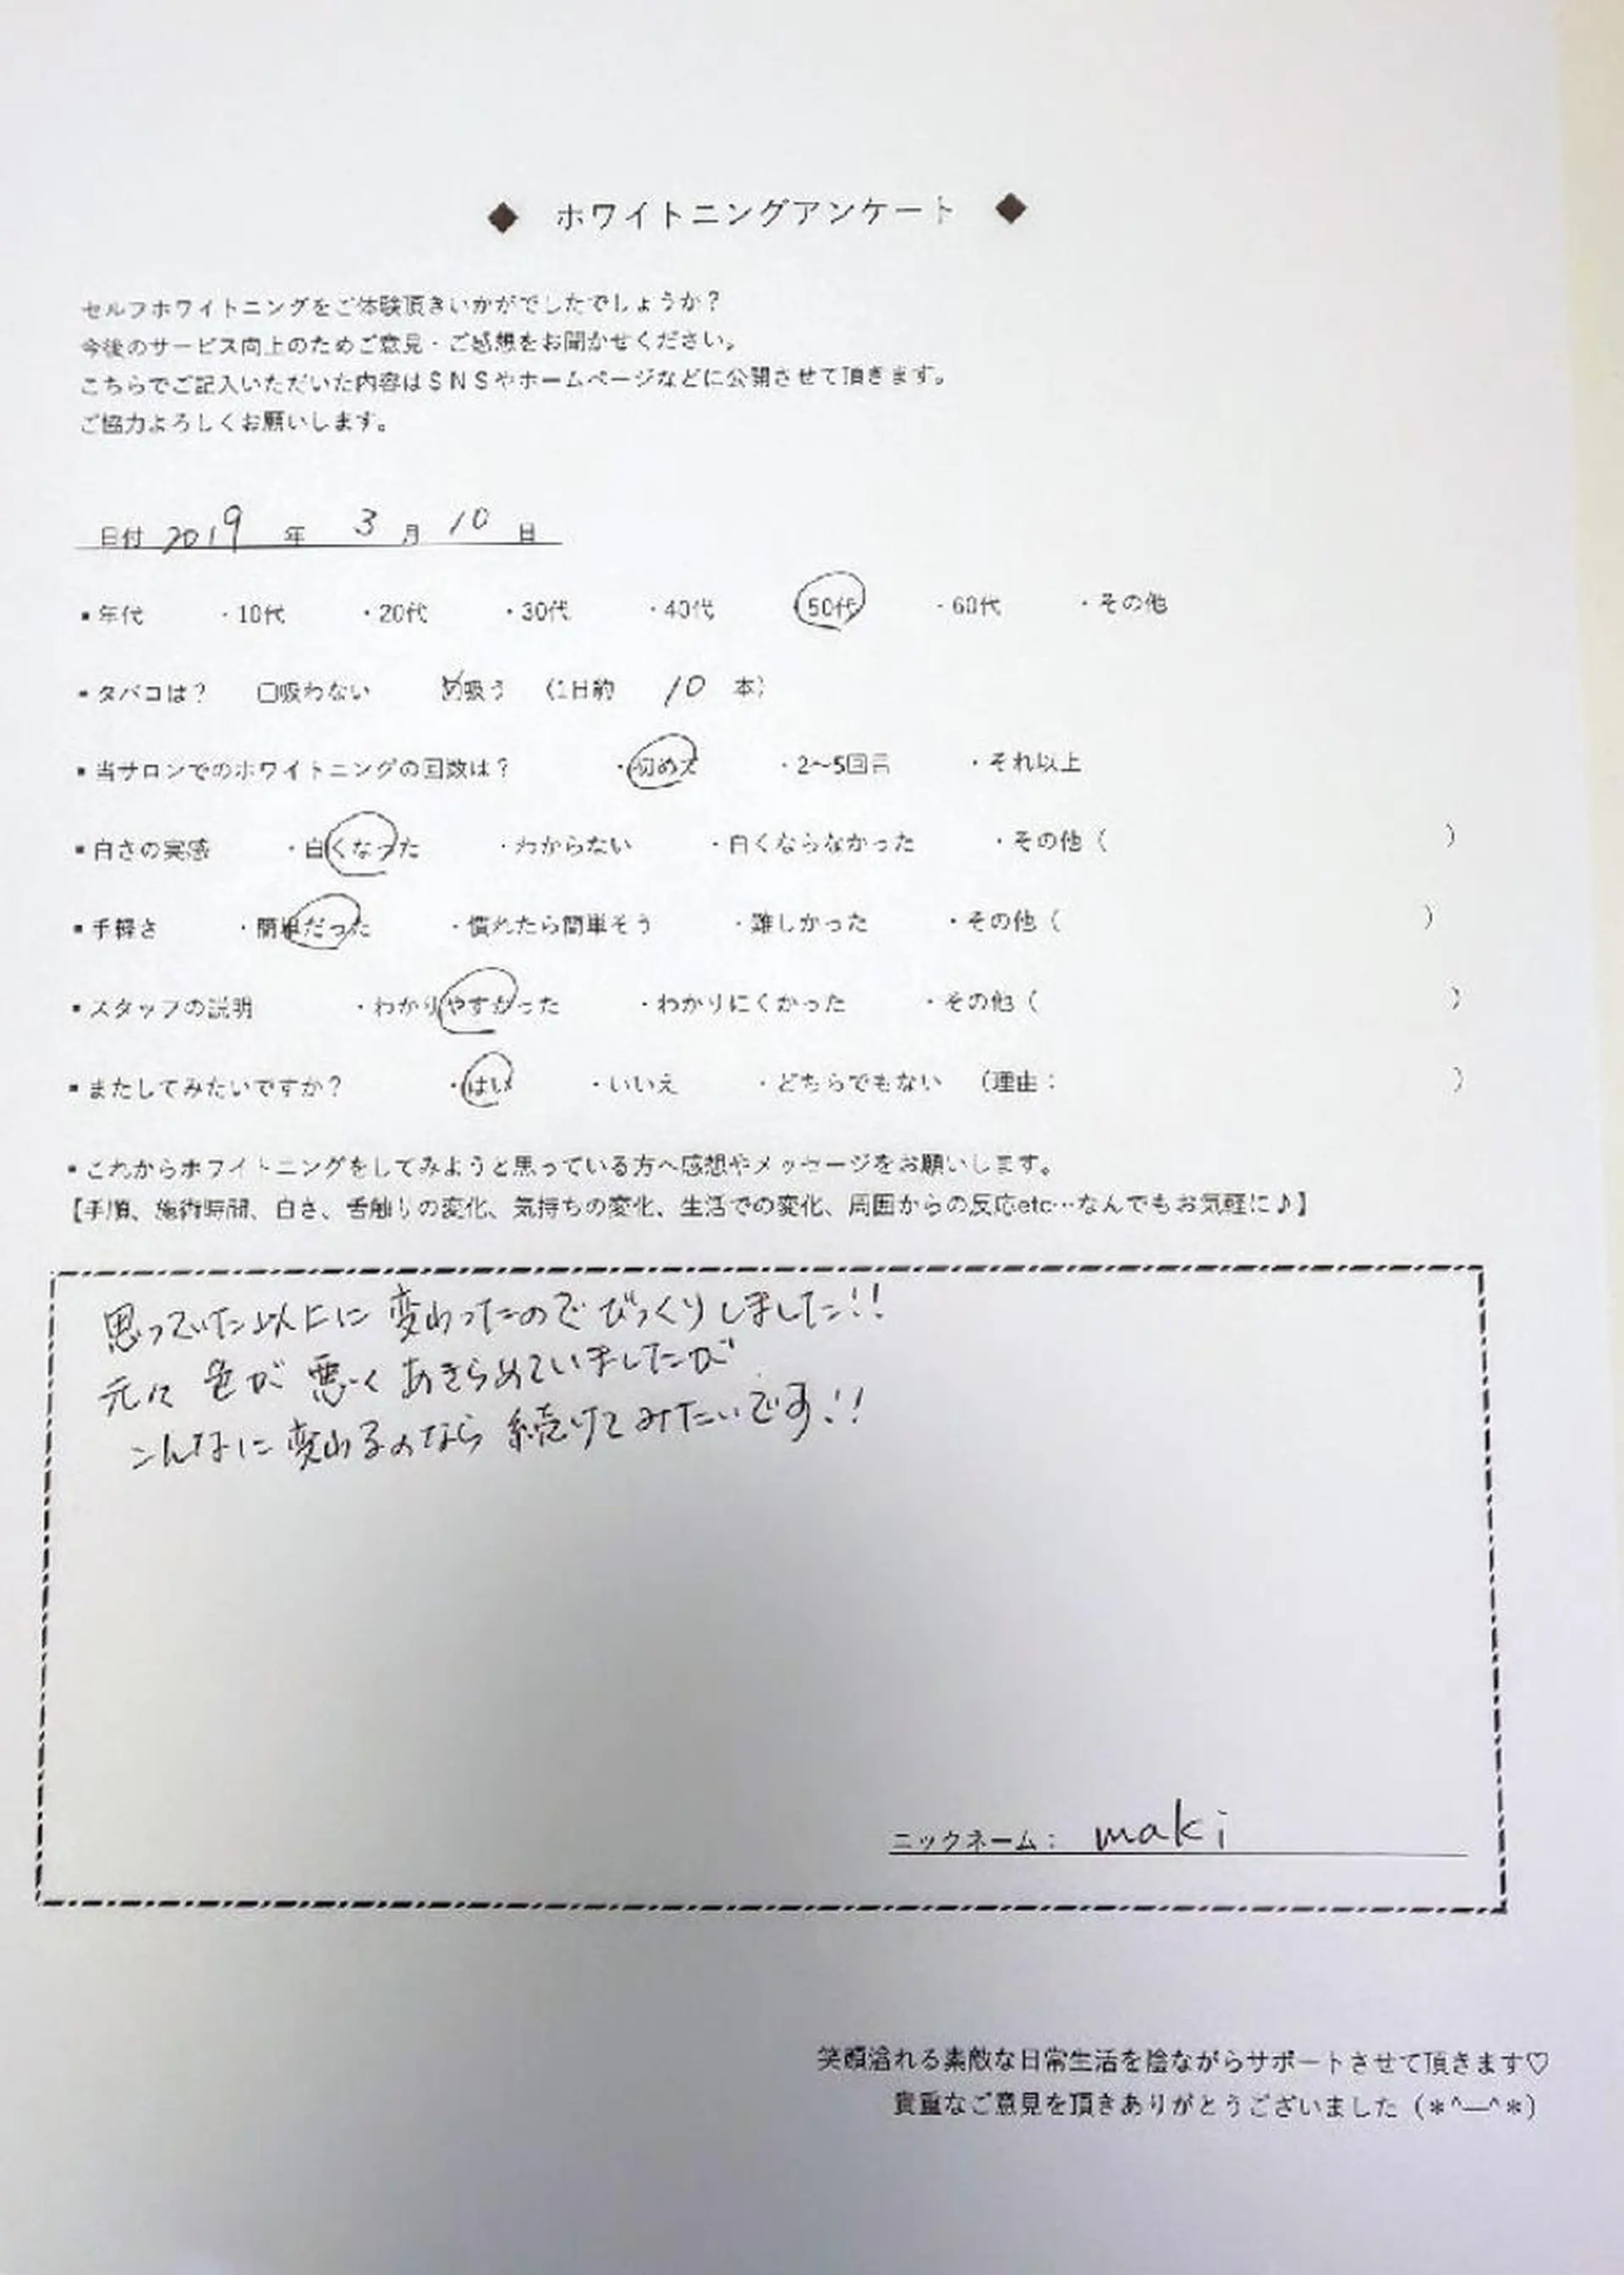 ◆ ホワイトニングアンケート ◆
セルフホワイトニングをご体験頂きいかがでしたでしょうか？
今後のサービス向上のためご意見・ご感想をお聞かせください。
こちらでご記入いただいた内容はＳＮＳやホームページなどに公開させて頂きます。
ご協力よろしくお願いします。
日付 2019 年 3 月 10 日
▪年代 ・10代 ・20代 ・30代 ・40代 50代 ・60代 ・その他
▪タバコは？ □吸わない ☑吸う （1日約 10 本）
▪当サロンでのホワイトニングの回数は？ ・初めて ・2～5回目 ・それ以上
▪白さの実感 ・白くなった ・わからない ・白くならなかった ・その他（ ）
▪手軽さ ・簡単だった ・慣れたら簡単そう ・難しかった ・その他（ ）
▪スタッフの説明 ・わかりやすかった ・わかりにくかった ・その他（ ）
▪またしてみたいですか？ ・はい ・いいえ ・どちらでもない （理由： ）
▪これからホワイトニングをしてみようと思っている方へ感想やメッセージをお願いします。
【手順、施術時間、白さ、舌触りの変化、気持ちの変化、生活での変化、周囲からの反応etc…なんでもお気軽に♪】
思っていた以上に変わったのでびっくりしました!!
元々色が悪くあきらめていましたが
こんなに変わるのなら続けてみたいです!!
ニックネーム： maki
笑顔溢れる素敵な日常生活を陰ながらサポートさせて頂きます♡
貴重なご意見を頂きありがとうございました（＊^—^＊）